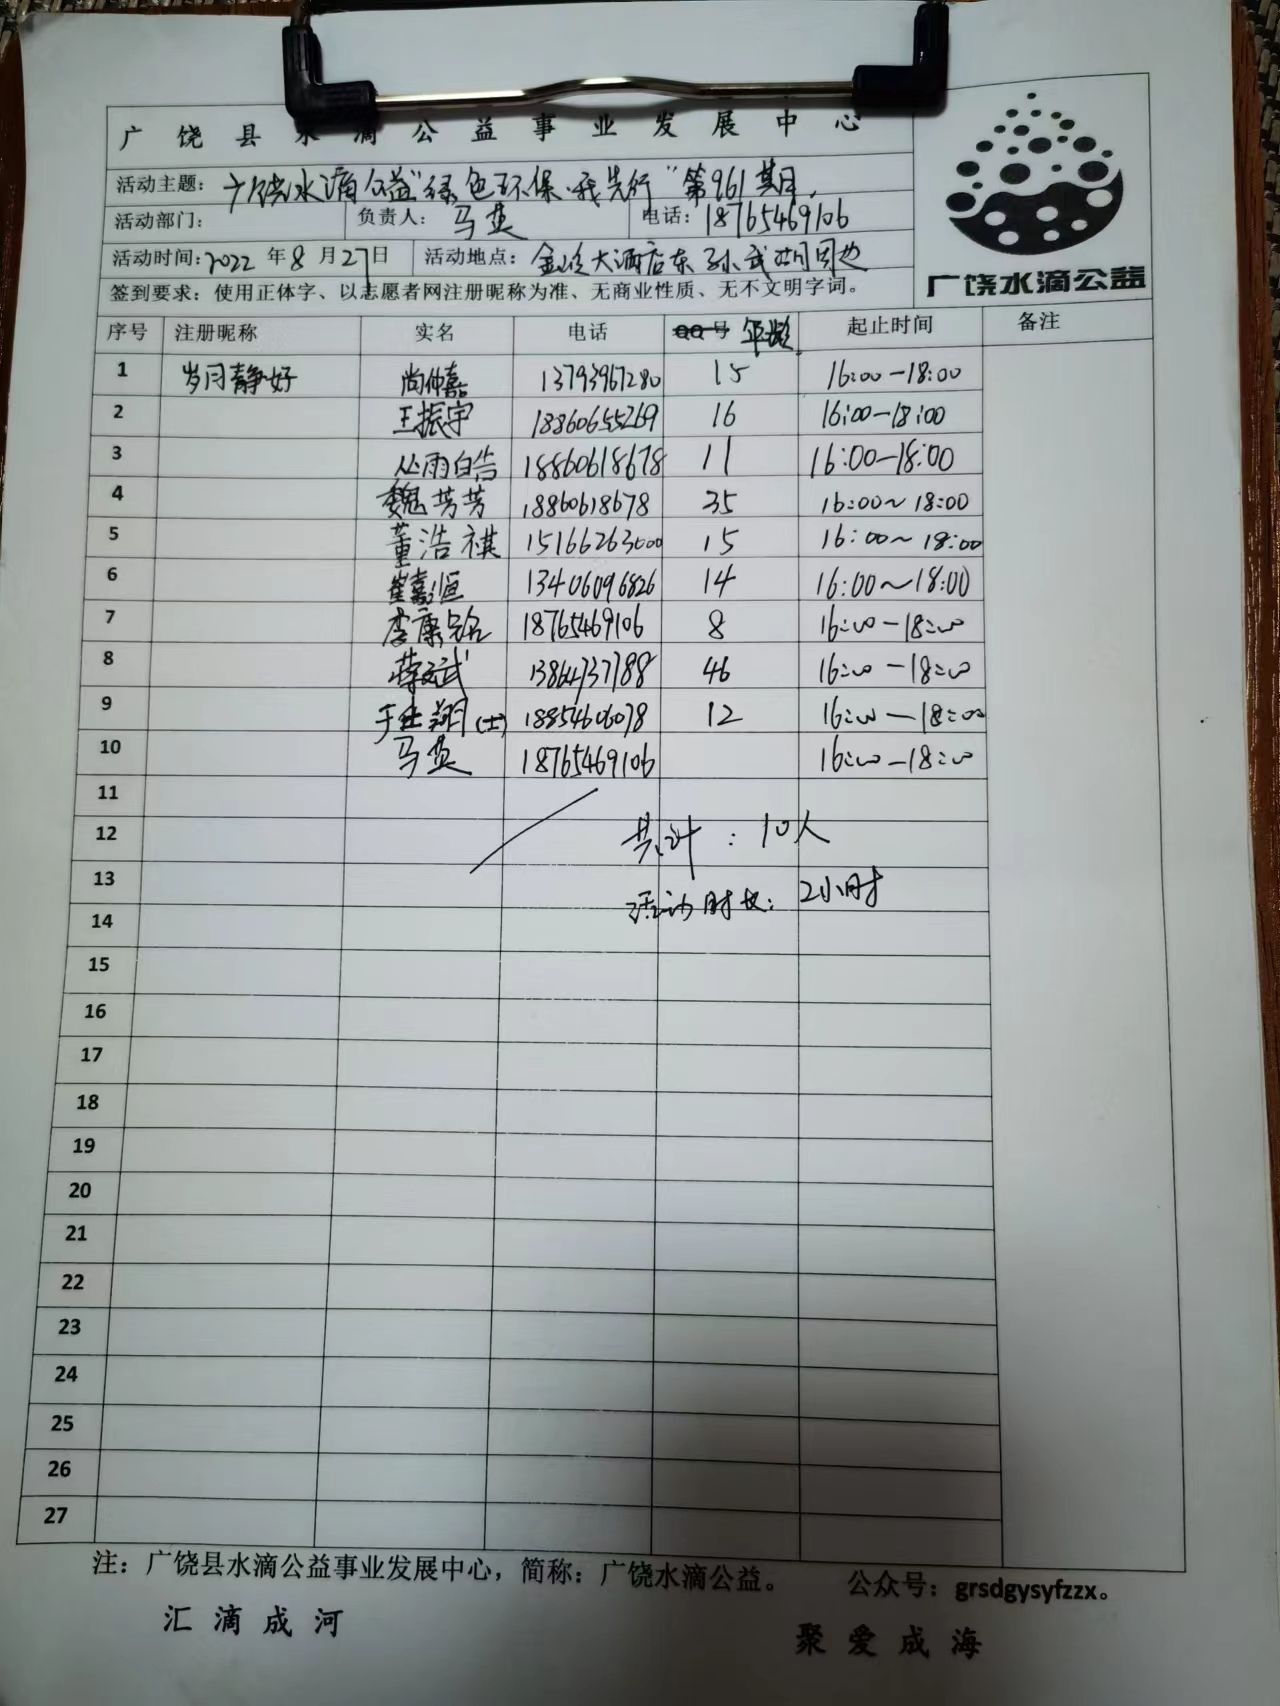 广饶县水滴公益事业发展中心
活动主题：广饶水滴公益"绿色环保·我先行"第961期
活动部门： 负责人：马英 电话：18765469106
活动时间：2022年8月27日 活动地点：大酒店东孙武湖周边
广饶水滴公益
签到要求：使用正体字、以志愿者网注册昵称为准、无商业性质、无不文明字词。
序号 注册昵称 实名 电话 QQ号 年龄 起止时间 备注
1 岁月静好 尚仲嘉 13793967280 15 16:00-18:00
2 王振宇 18860655269 16 16:00-18:00
3 丛雨 18860618678 11 16:00-18:00
4 魏芳芳 18860618678 35 16:00~18:00
5 董浩祺 15166263000 15 16:00~18:00
6 崔嘉恒 13406096826 14 16:00~18:00
7 李康铭 18765469106 8 16:00-18:00
8 蒋文武 13864737188 46 16:00-18:00
9 于仕翔(士) 18854606078 12 16:00-18:00
10 马英 18765469106 16:00-18:00
11
12 共计：10人
13 活动时长：2小时
14
15
16
17
18
19
20
21
22
23
24
25
26
27
注：广饶县水滴公益事业发展中心，简称：广饶水滴公益。 公众号：grsdgysyfzzx。
汇滴成河 聚爱成海